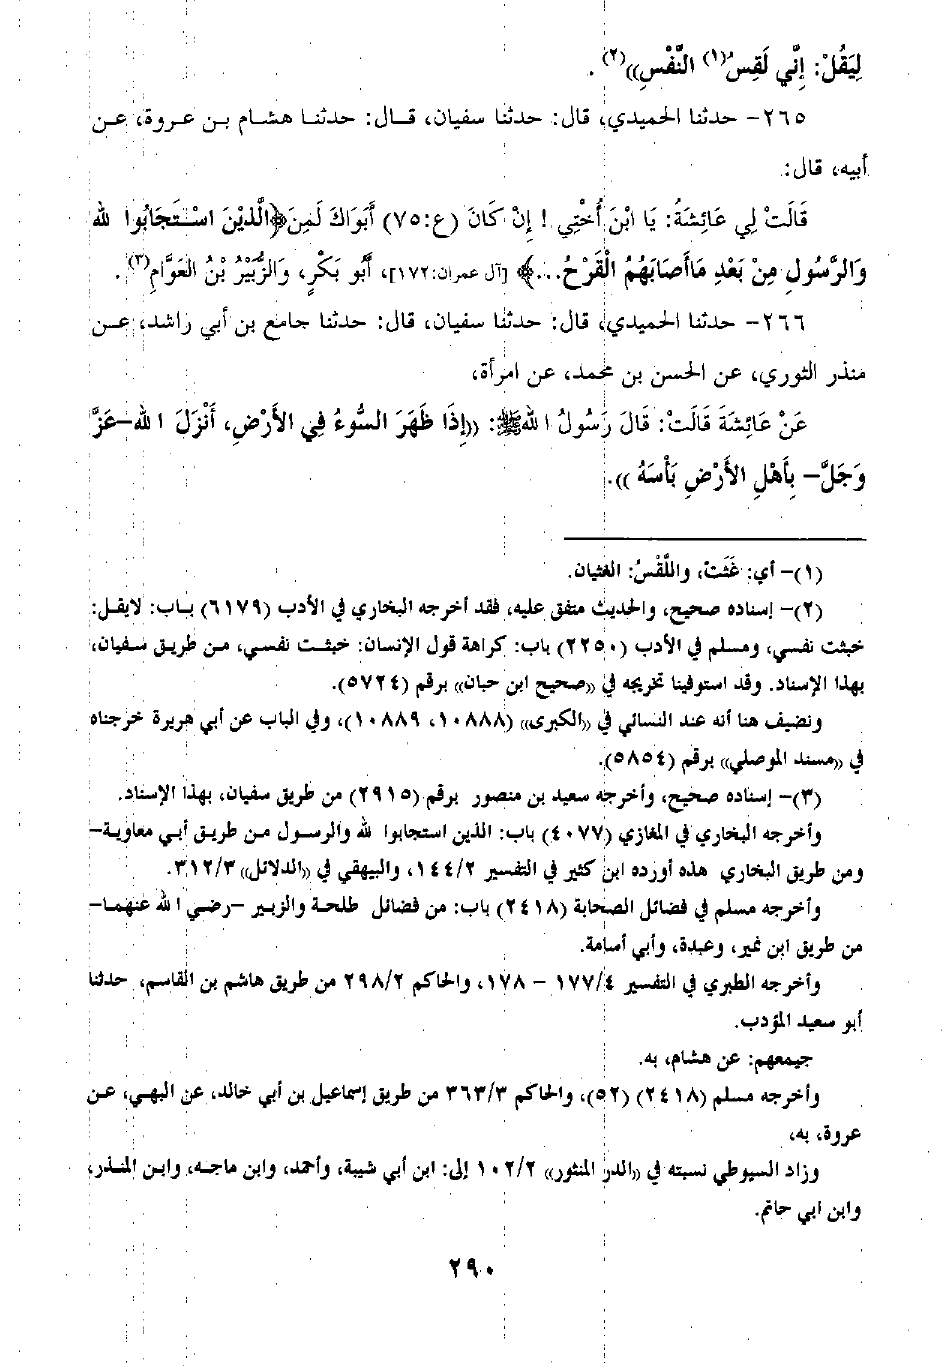 لِيَقُلْ: إِنَّي لَقِسُ(١) النَّفْسِ))(٢).
٢٦٥- حدثنا الحميدي، قال: حدثنا سفيان، قال: حدثنا هشام بن عروة، عن
أبيه، قال:
قَالَتْ لِي عَائِشَةُ: يَا ابْنَ أُخْتِي ! إِنْ كَانَ (ع:٧٥) أَبَوَاكَ لَمِنَ ﴿الَّذِيْنَ اسْتَجَابُوا لله
وَالرَّسُولِ مِنْ بَعْدِ مَاأَصَابَهُمُ الْقَرْحُ...﴾ [آل عمران:١٧٢]، أَبُو بَكْرٍ، وَالزُّبَيْرُ بْنُ العَوَّامِ(٣).
٢٦٦- حدثنا الحميدي، قال: حدثنا سفيان، قال: حدثنا جامع بن أبي راشد، عن
منذر الثوري، عن الحسن بن محمد، عن امرأة،
عَنْ عَائِشَةَ قَالَتْ: قَالَ رَسُولُ اللهﷺ: ((إِذَا ظَهَرَ السُّوءُ فِي الأَرْضِ، أَنْزَلَ الله-عَزَّ
وَجَلَّ- بِأَهْلِ الأَرْضِ بَأْسَهُ )).
(١)- أي: غَثَتْ، واللَّقْسُ: الغثيان.
(٢)- إسناده صحيح، والحديث متفق عليه، فقد أخرجه البخاري في الأدب (٦١٧٩) باب: لايقل:
خبثت نفسي، ومسلم في الأدب (٢٢٥٠) باب: كراهة قول الإنسان: خبثت نفسي، من طريق سفيان،
بهذا الإسناد. وقد استوفينا تخريجه في ((صحيح ابن حبان)) برقم (٥٧٢٤).
ونضيف هنا أنه عند النسائي في ((الكبرى)) (١٠٨٨٨، ١٠٨٨٩)، وفي الباب عن أبي هريرة خرجناه
في ((مسند الموصلي)) برقم (٥٨٥٤).
(٣)- إسناده صحيح، وأخرجه سعيد بن منصور برقم (٢٩١٥) من طريق سفيان، بهذا الإسناد.
وأخرجه البخاري في المغازي (٤٠٧٧) باب: الذين استجابوا لله والرسول من طريق أبي معاوية-
ومن طريق البخاري هذه أورده ابن كثير في التفسير ١٤٤/٢، والبيهقي في ((الدلائل)) ٣١٢/٣.
وأخرجه مسلم في فضائل الصحابة (٢٤١٨) باب: من فضائل طلحة والزبير -رضي الله عنهما-
من طريق ابن نمير، وعبدة، وأبي أسامة.
وأخرجه الطبري في التفسير ١٧٧/٤ - ١٧٨، والحاكم ٢٩٨/٢ من طريق هاشم بن القاسم، حدثنا
أبو سعيد المؤدب.
جميعهم: عن هشام، به.
وأخرجه مسلم (٢٤١٨) (٥٢)، والحاكم ٣٦٣/٣ من طريق إسماعيل بن أبي خالد، عن البهي، عن
عروة، به،
وزاد السيوطي نسبته في ((الدر المنثور)) ١٠٢/٢ إلى: ابن أبي شيبة، وأحمد، وابن ماجه، وابن المنذر،
وابن ابي حاتم.
٢٩٠